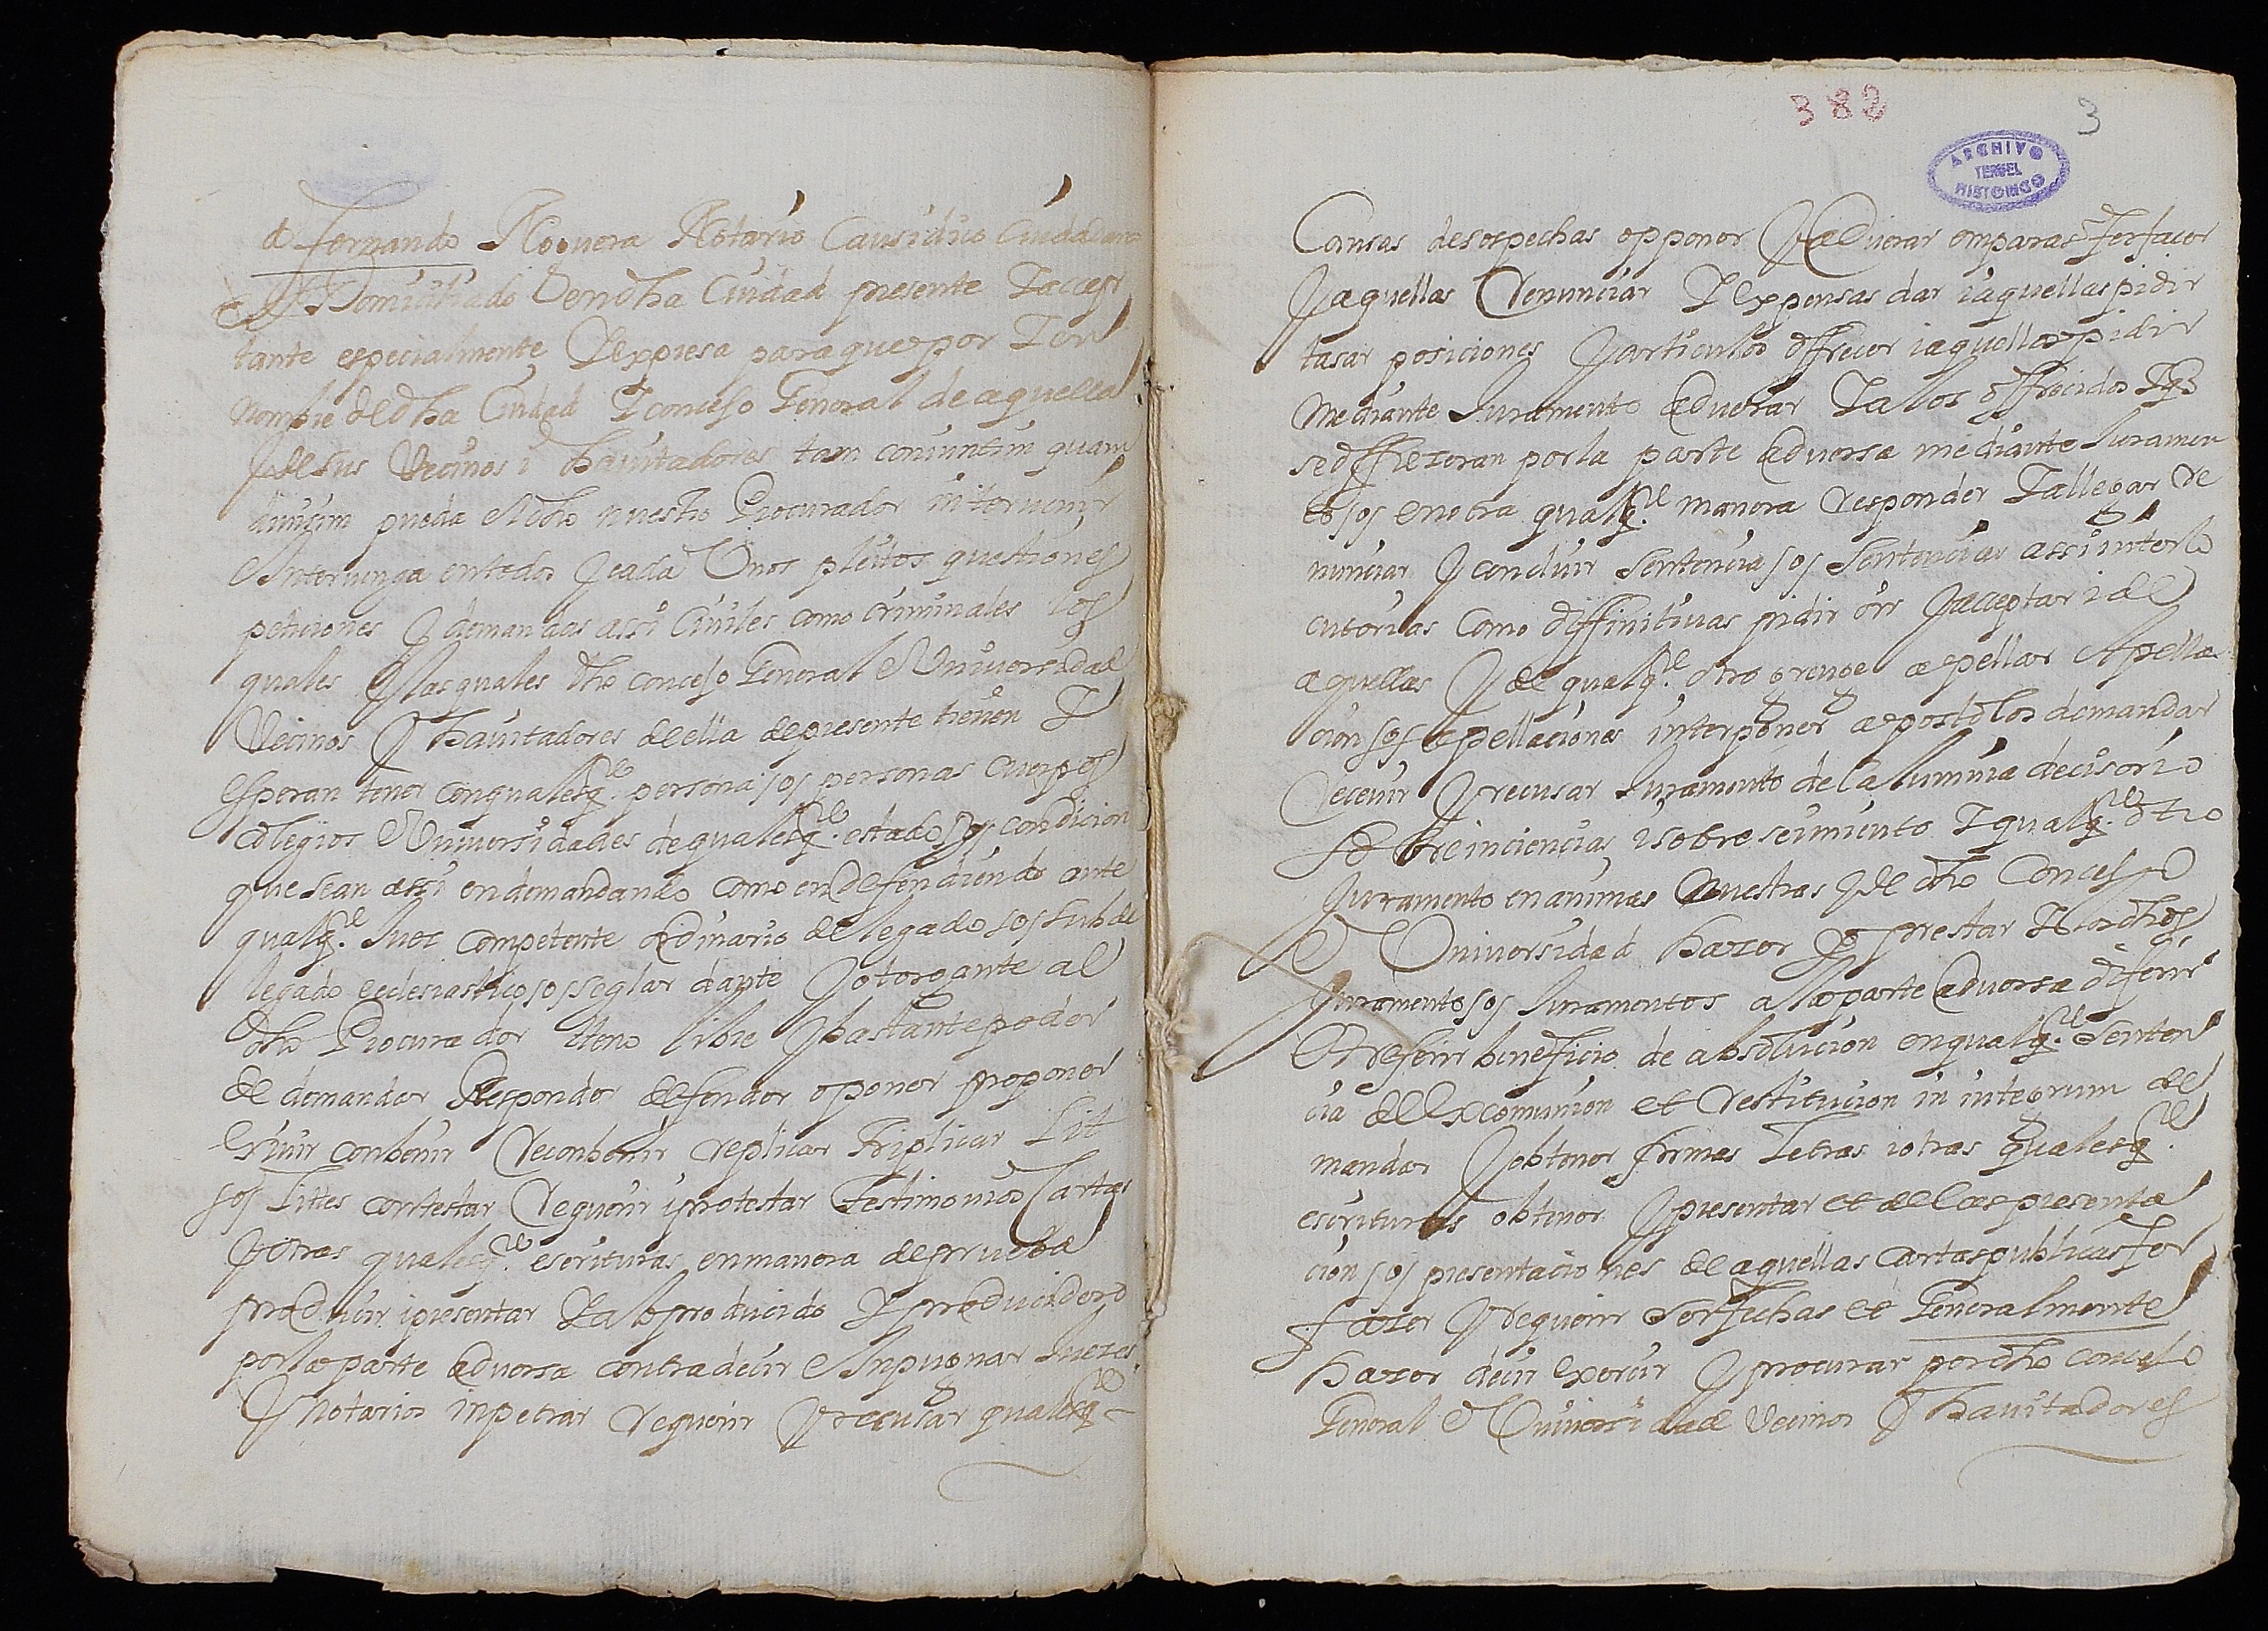 a Fernando Noguera Notario Causidico Ciudadano
e Domiciliado en dha Ciudad presente Y accep
tante especialmente Y expresa para que por Y en
nombre de dha Ciudad Y concejo General de aquella
Y de sus Vecinos i hauitadores tam coniuntim quam
diuisim pueda el dho nuestro Procurador interuenir
e Interuenga en todos Y cada Unos pleitos questiones
peticiones Y demandas assi Ciuiles como criminales los
quales Y las quales dho concejo General e Uniuersidad
Vecinos Y hauitadores de ella de presente tienen Y
esperan tener con qualesqre persona sos personas cuerpos
colegios e Uniuersidades de qualesqre estado sy condicion
que sean assi en demandando como en defendiendo ante
qualqre Juez competente ordinario delegado sos subde
legado ecclesiastico sos seglar dante Y otorgante al
dho Procurador lleno libre Y bastante poder
de demandar Responder defender oponer proponer
conbenir Reconbenir replicar Triplicar Lit
sos Lites contestar Requerir y protestar Testimonios Cartas
Y otras qualesqre escrituras en manera de prueba
producir i presentar Y a lo producido Y producidero
por la parte aduersa contradecir e Inpugnar Juezes
Y Notarios inpetrar requerir Y recusar qualesqre
382 3
ARCHIVO
TERUEL
HISTORICO
Causas de sospechas opponer Y aduerar emparas Fer facer
Y aquellas Renunciar Y expensas dar i aquellas pidir
tasar posiciones Y articulos offrecer i aquellos pidir
mediante Juramento aduerar Y a los offrecidos Y q
se offrezeran por la parte aduersa mediante Juramen
to sos en otra qualqre manera responder Y allegar re
nunciar Y concluir Sentencia sos Sentencias assi interlo
cutorias como diffinitiuas pidir oir Y acceptar i de
aquellas Y de qualqre otro greuge apellar Apella
cion sos apellaciones interponer apostolos demandar
Receuir Y recusar Juramento de Calumnia decisorio
de Reincidencias i sobreseimiento Y qualqre otro
Juramento en animas nuestras Y de dho Concejo
e Uniuersidad hazer Y prestar Y los dhos
Juramento sos Juramentos a la parte aduersa diferir
e referir beneficio de absolucion en qualqre Senten
cia de Excomunion et restitucion in integrum de
mandar Y obtener firmas Letras i otras qualesqre
escrituras obtener Y presentar et de las presenta
cion sos presentaciones de aquellas cartas publicas Fer
fazer Y requerir Ser fechas et Generalmente
hazer decir exercir Y procurar por dho concejo
General e Uniuersidad Vecinos Y hauitadores